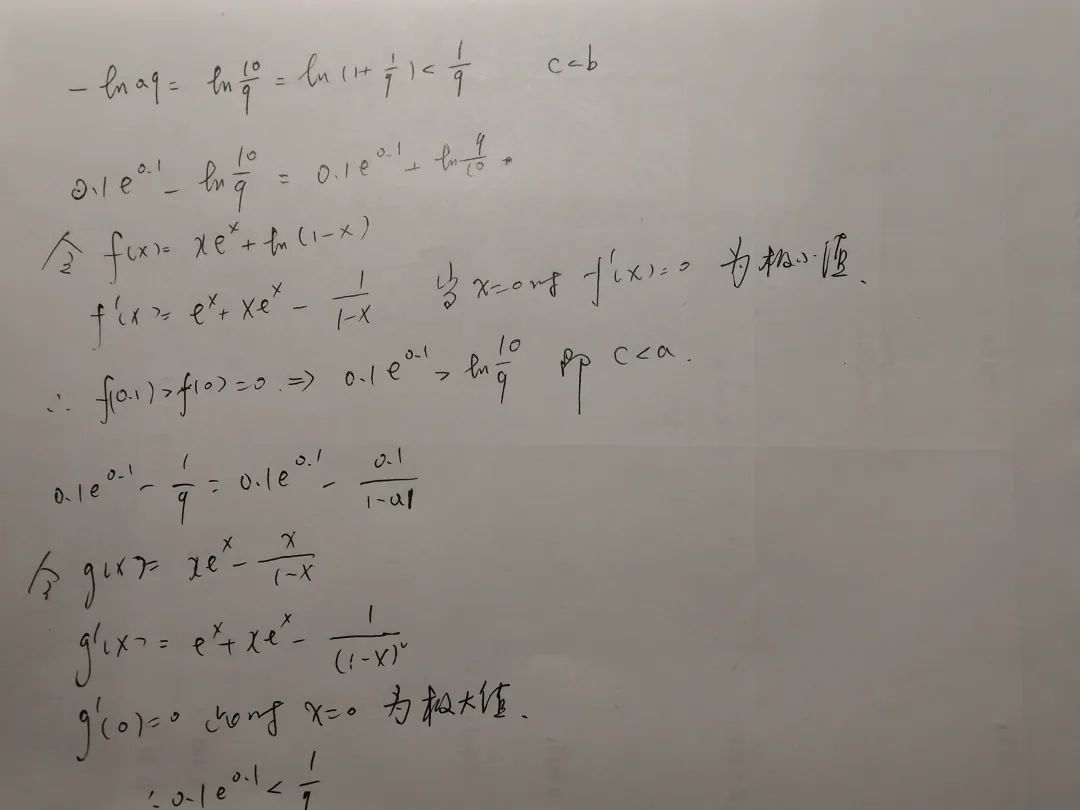 -ln 0.9 = ln 10/9 = ln(1+1/9) < 1/9 c<b
0.1e^0.1 - ln 10/9 = 0.1e^0.1 + ln 9/10.
令 f(x)= xe^x + ln(1-x)
f'(x)= e^x + xe^x - 1/(1-x) 当 x=0时 f'(x)=0 为极小值.
∴ f(0.1)>f(0)=0 ⇒ 0.1e^0.1 > ln 10/9 即 c<a.
0.1e^0.1 - 1/9 = 0.1e^0.1 - 0.1/(1-0.1)
令 g(x)= xe^x - x/(1-x)
g'(x)= e^x + xe^x - 1/(1-x)^2
g'(0)=0 此时 x=0 为极大值.
∴ 0.1e^0.1 < 1/9